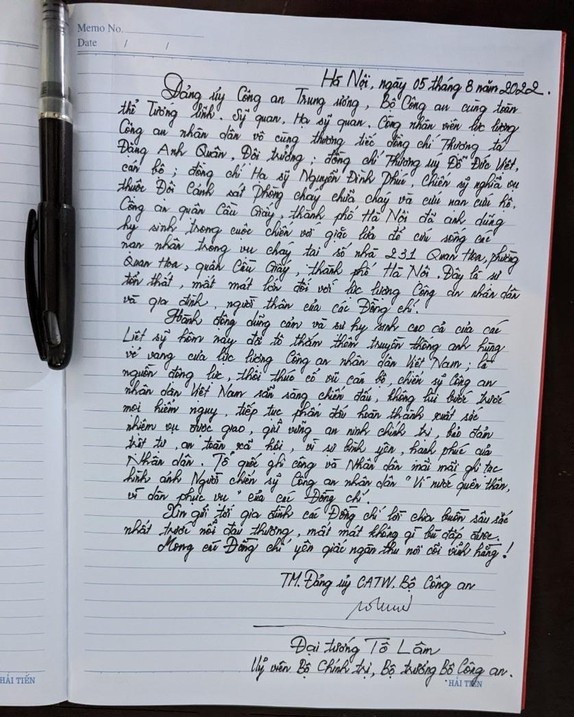 Memo No.
Date / /
Hà Nội, ngày 05 tháng 8 năm 2022.
Đảng ủy Công an Trung ương, Bộ Công an cùng toàn
thể Tướng lĩnh, Sỹ quan, Hạ sỹ quan, Công nhân viên lực lượng
Công an nhân dân vô cùng thương tiếc đồng chí Thượng tá
Đặng Anh Quân, Đội trưởng; đồng chí Thượng úy Đỗ Đức Việt,
cán bộ; đồng chí Hạ sỹ Nguyễn Đình Phúc, Chiến sỹ nghĩa vụ
thuộc Đội Cảnh sát Phòng cháy, chữa cháy và cứu nạn cứu hộ,
Công an quận Cầu Giấy, thành phố Hà Nội đã anh dũng
hy sinh trong cuộc chiến với giặc lửa để cứu sống các
nạn nhân trong vụ cháy tại số nhà 231 Quan Hoa, phường
Quan Hoa, quận Cầu Giấy, thành phố Hà Nội. Đây là sự
tổn thất, mất mát lớn đối với lực lượng Công an nhân dân
và gia đình, người thân của các Đồng chí.
Hành động dũng cảm và sự hy sinh cao cả của các
Liệt sỹ hôm nay đã tô thắm thêm truyền thống anh hùng
vẻ vang của lực lượng Công an nhân dân Việt Nam; là
nguồn động lực, thôi thúc cổ vũ cán bộ, chiến sỹ Công an
nhân dân Việt Nam sẵn sàng chiến đấu, không lùi bước trước
mọi hiểm nguy, tiếp tục phấn đấu hoàn thành xuất sắc
nhiệm vụ được giao, giữ vững an ninh chính trị, bảo đảm
trật tự, an toàn xã hội, vì sự bình yên, hạnh phúc của
Nhân dân. Tổ quốc ghi công và Nhân dân mãi mãi ghi tạc
hình ảnh Người chiến sỹ Công an nhân dân "Vì nước quên thân,
vì dân phục vụ" của các Đồng chí.
Xin gửi tới gia đình các Đồng chí lời chia buồn sâu sắc
nhất trước nỗi đau thương, mất mát không gì bù đắp được.
Mong các Đồng chí yên giấc ngàn thu nơi cõi vĩnh hằng!
TM. Đảng uỷ CATW, Bộ Công an
Đại tướng Tô Lâm
Uỷ viên Bộ Chính trị, Bộ trưởng Bộ Công an.
HẢI TIẾN
HẢI TIẾN